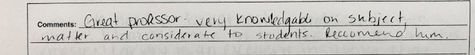 Comments: Great professor. very knowledgable on subject,
matter and considerate to students. Reccomend him.